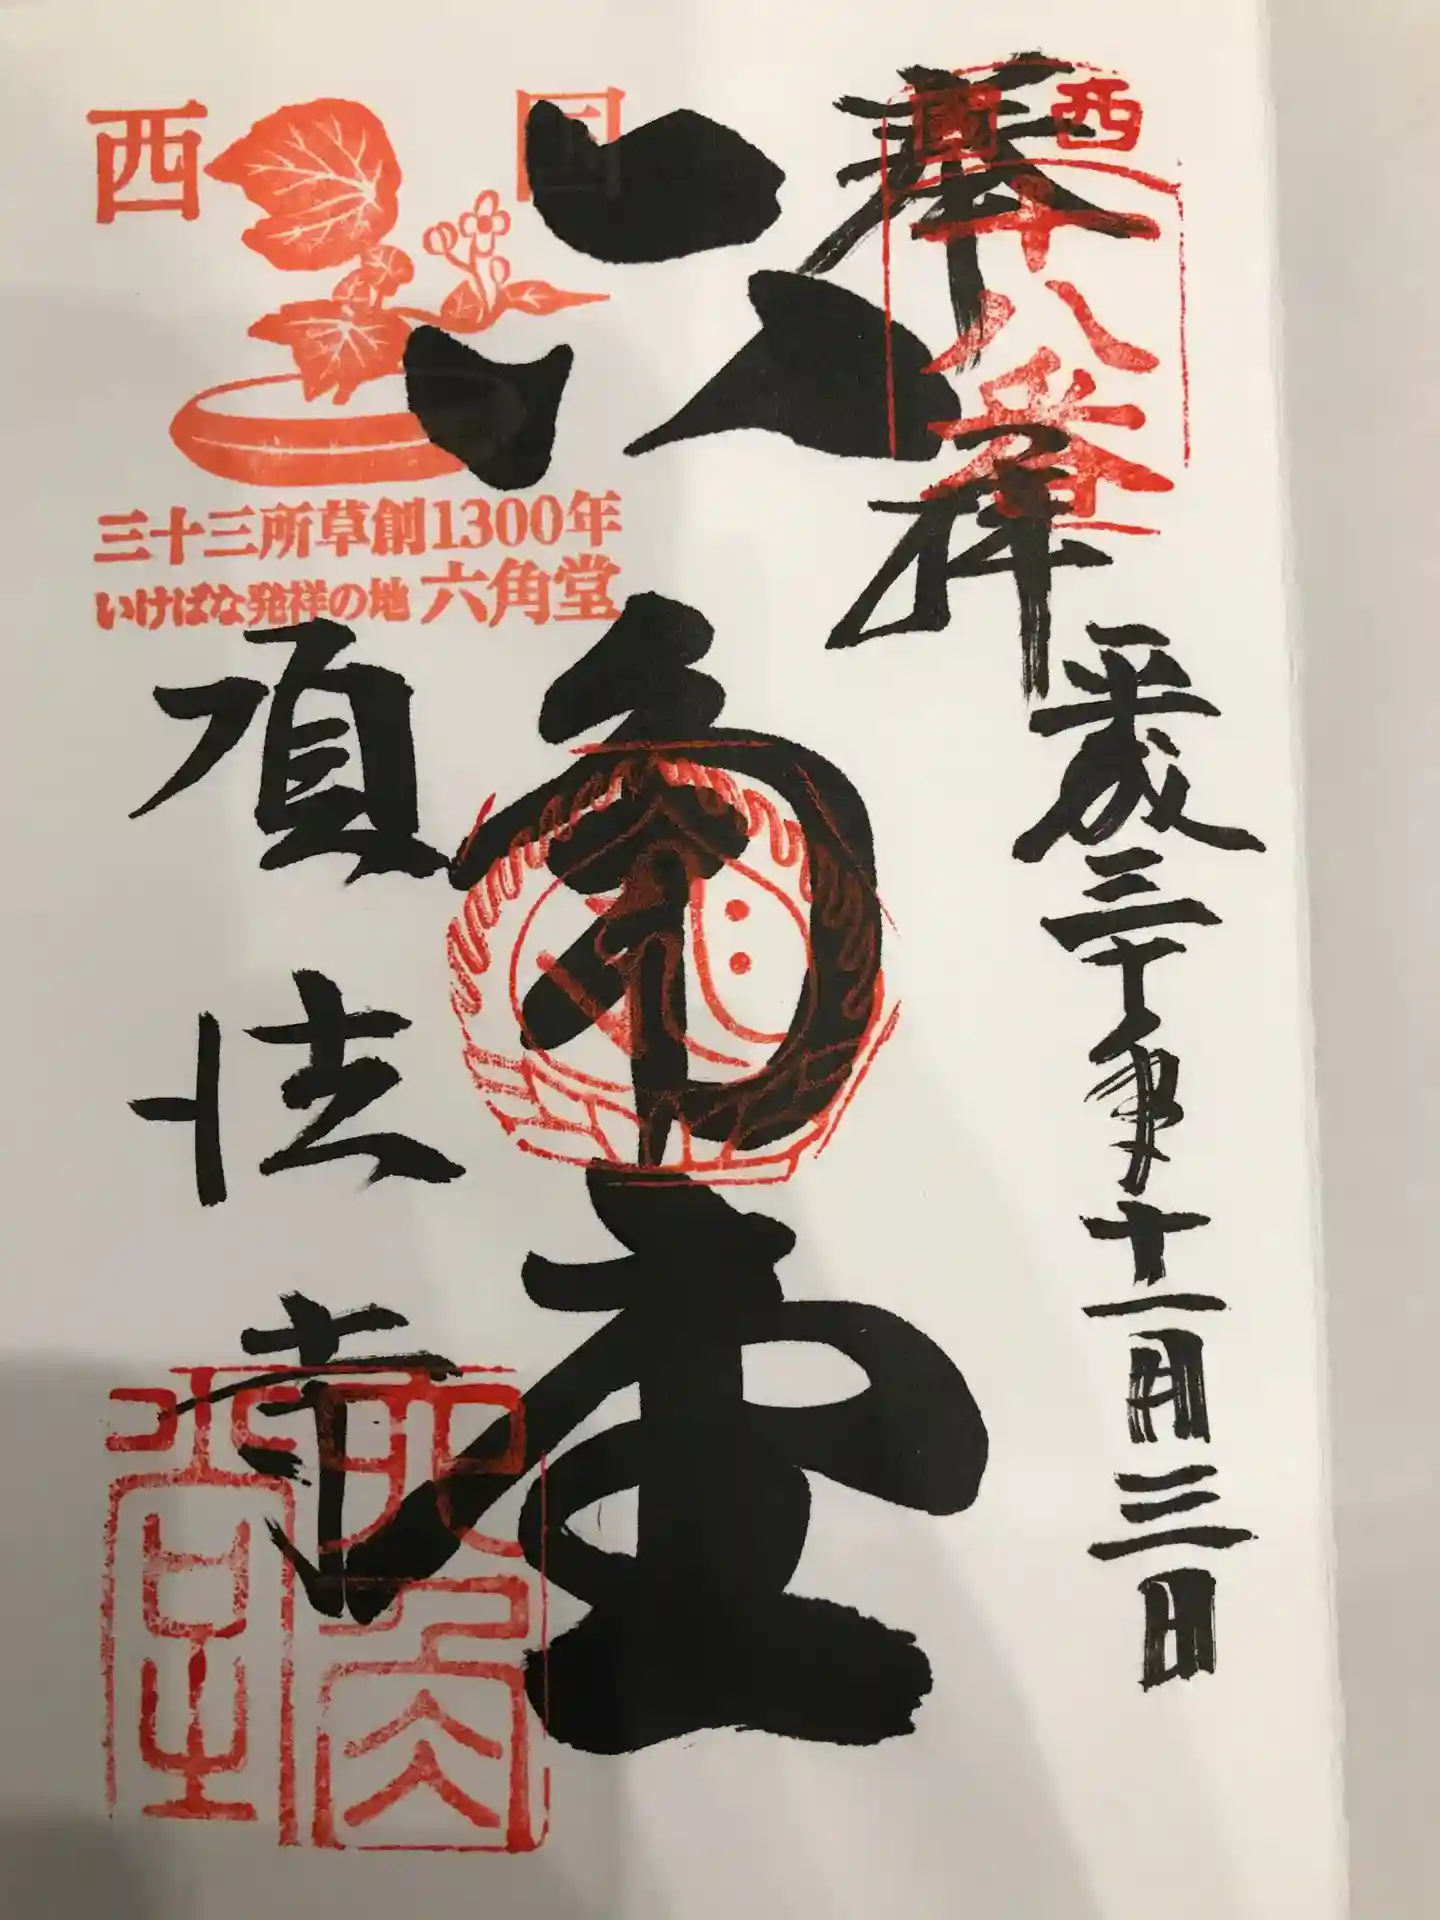 奉拝
西國
十八番
平成三十年十一月三日
六角堂
西国
三十三所草創1300年
いけばな発祥の地 六角堂
頂法寺
六角堂